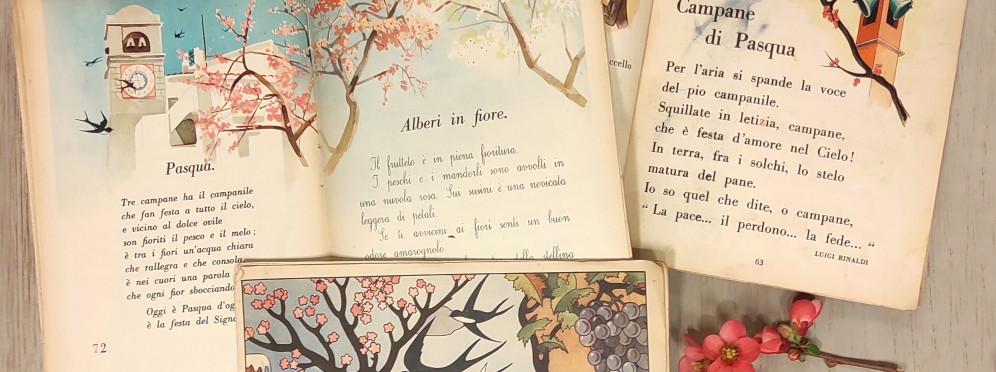 Pasqua.
Tre campane ha il campanile
che fan festa a tutto il cielo,
e vicino al dolce ovile
son fioriti il pesco e il melo;
è tra i fiori un'acqua chiara
che rallegra e che consola,
è nei cuori una parola
che ogni fior sbocciando
Oggi è Pasqua d'og
è la festa del Sign
72
Alberi in fiore.
Il frutteto è in piena fioritura.
I peschi e i mandorli sono avvolti in
una nuvola rosa. Sui susini è una nevicata
leggera di petali.
Se ti avvicini ai fiori senti un buon
odore amarognolo.
della stellina
ccello
Campane
di Pasqua
Per l'aria si spande la voce
del pio campanile.
Squillate in letizia, campane,
che è festa d'amore nel Cielo!
In terra, fra i solchi, lo stelo
matura del pane.
Io so quel che dite, o campane,
" La pace... il perdono... la fede... "
LUIGI RINALDI
63